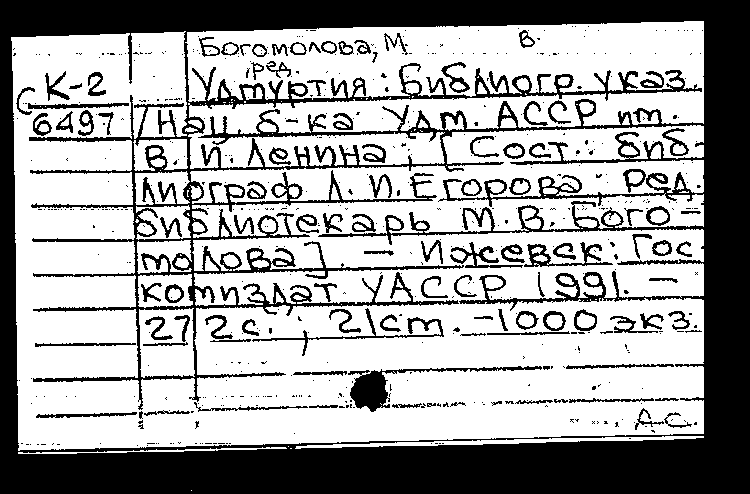 Богомолова, М. В.
ред.
К-2 Удмуртия : Библиогр. указ.
6497 / Нац. б-ка Удм. АССР им.
В. И. Ленина ; [ Сост.: биб-
лиограф Л. И. Егорова ; Ред.
библиотекарь М. В. Бого-
молова ]. — Ижевск : Гос-
комиздат УАССР, 1991. —
272 с. ; 21 ст. - 1000 экз.
А.С.